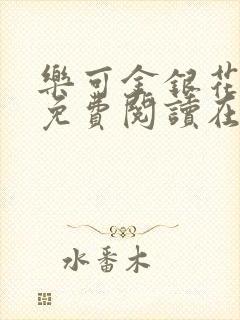 樂可金銀花
免費閱讀在
水番木